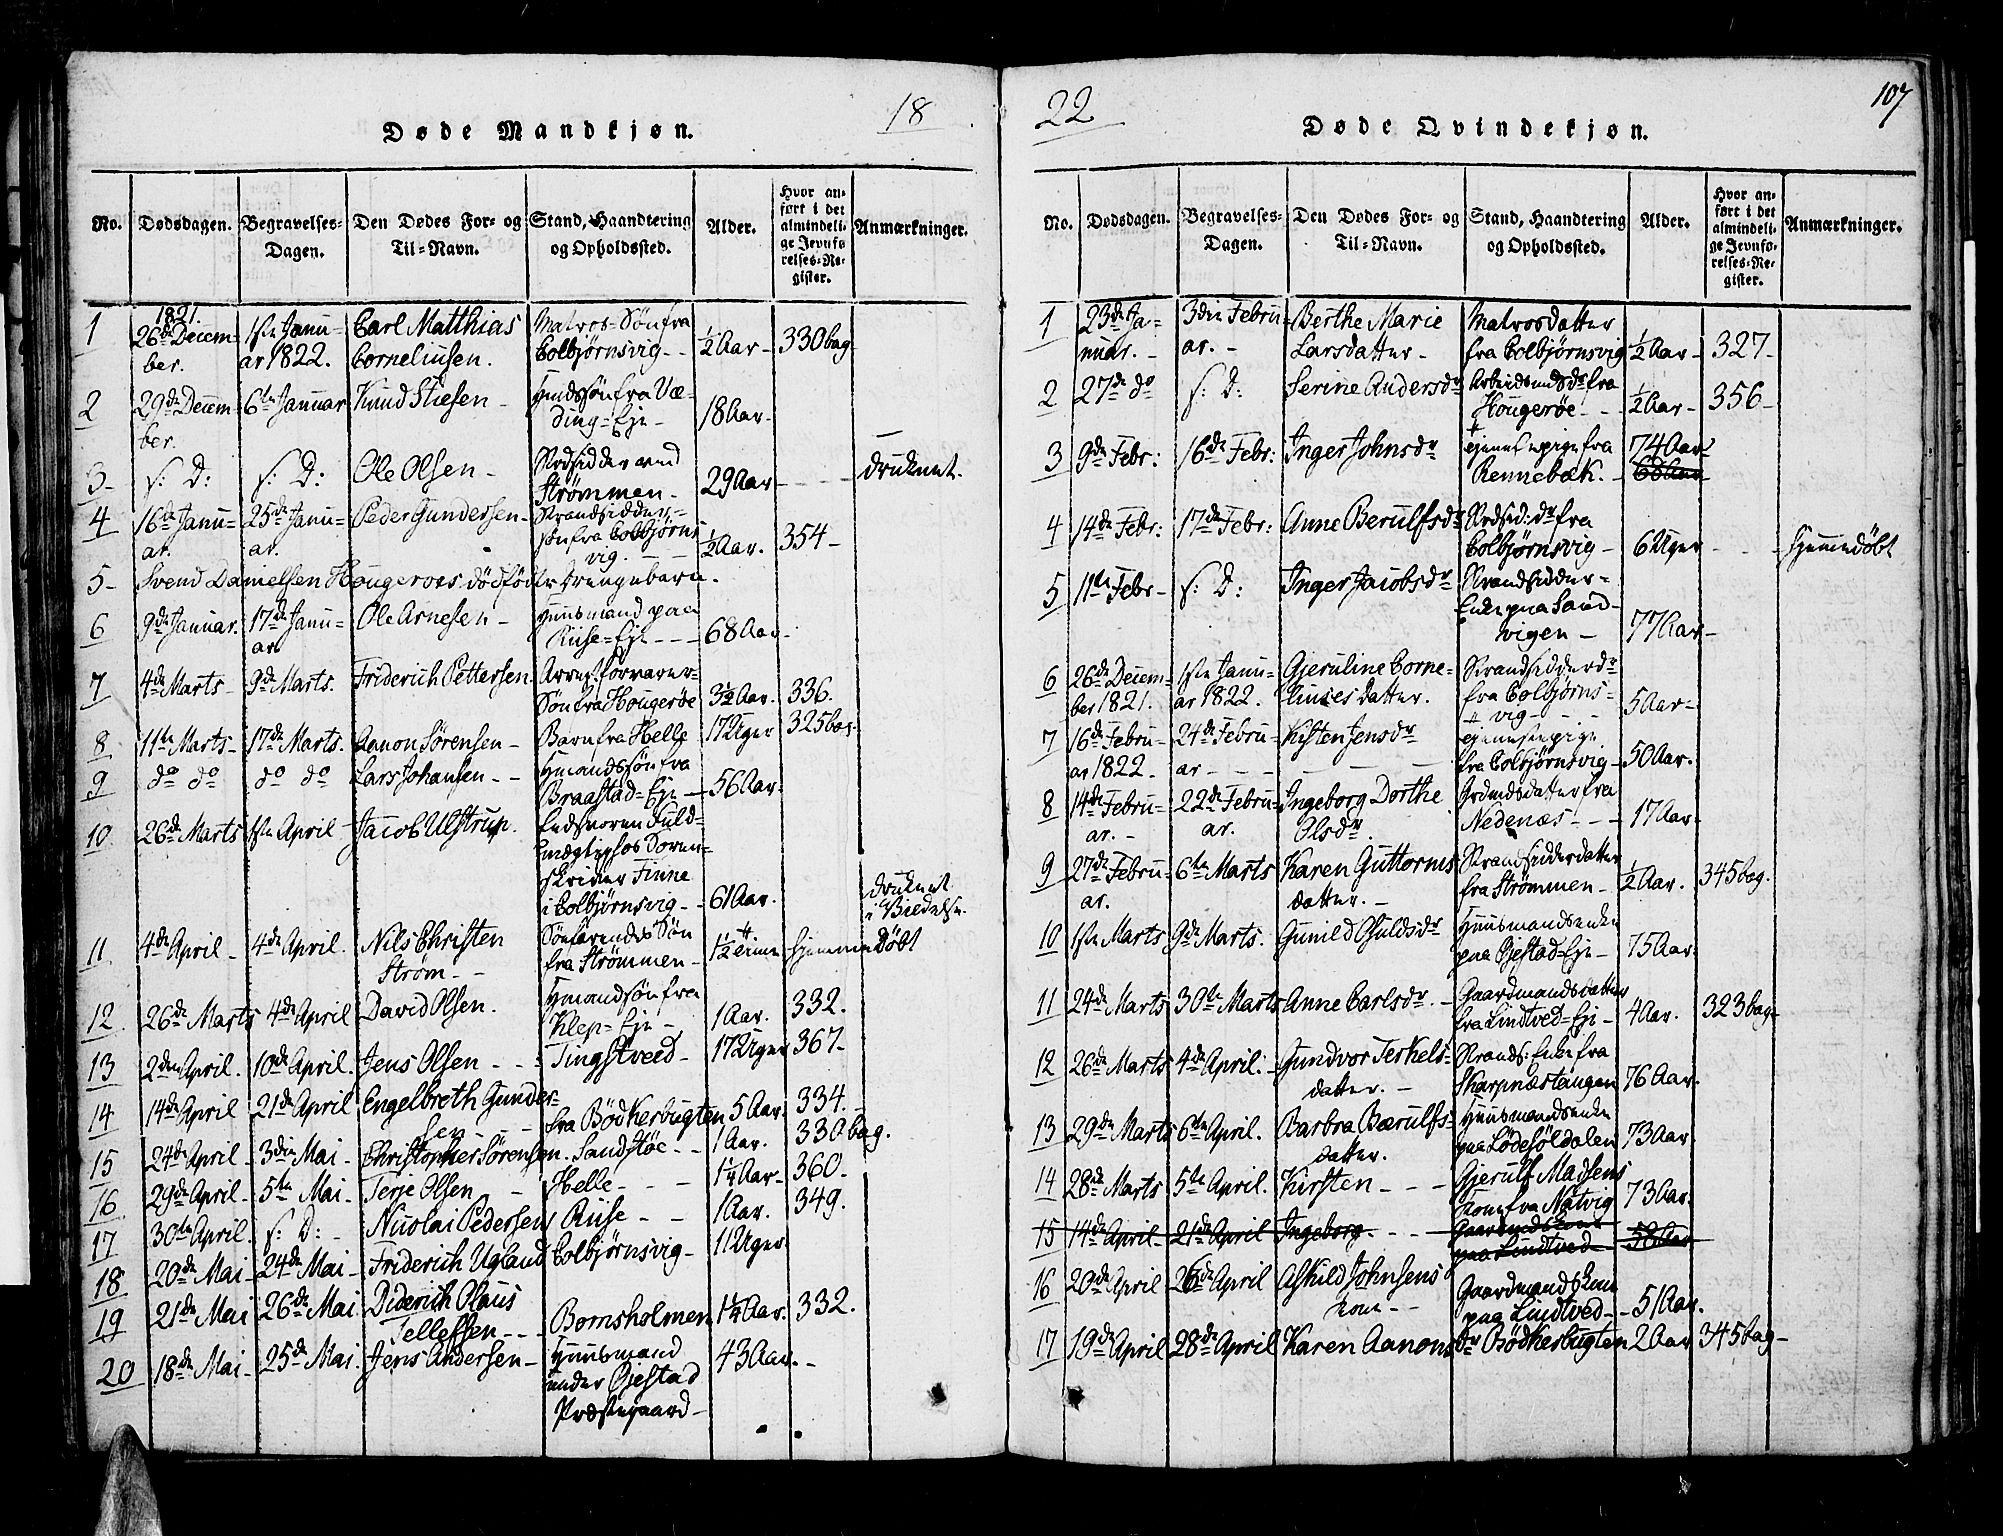 18
Døde Mandkjøn.
No. Dødsdagen. Begravelses-Dagen. Den Dødes For- og Til-Navn. Stand, Haandtering og Opholdssted. Alder. Hvor anført i det almindelige Jevnførelses-Register. Anmærkninger.
1821.
1 26de Decem- 1ste Janu- Carl Matthias Matros-Søn fra
ber. ar 1822. Corneliusen. Colbjørnsvig - ½ Aar - 330 bag
2 29de Decem- 6te Januar Knud Stiesen - Hmdssøn fra Væ-
ber. ding-Eje - 18 Aar -
3 s: D: s: D: Ole Olsen - Strdsidder ved
Strømmen - 29 Aar - druknet.
4 16de Janu- 25de Janu- Peder Gundersen - Strandsidder-
ar. ar. søn fra Colbjørns
vig. ½ Aar. 354 -
5 - Svend Danielsen Hougeroes dødfødte Drengebarn.
6 9de Januar. 17de Janu- Ole Arnesen - Huusmand paa
ar Riise-Eje - 68 Aar -
7 4de Marts - 9de Marts. Friderich Pettersen Arrestforvarer-
Søn fra Hougerøe 3½ Aar. 336.
8 11te Marts - 17de Marts. Aanon Sørensen - Barn fra Helle 17 Uger 325 bag
9 do do do do Lars Johansen - Hmandssøn fra
Braastad-Eje - 56 Aar -
10 26de Marts 1ste April - Jacob Ulstrup. Edsvoren Fuld-
mægtig hos Soren-
skriver Finne
i Colbjørnsvig - 61 Aar.
druknet
11 4de April - 4de April. Nils Christen Sønførendes Søn 1½ Hjemmedøbt
Strøm - fra Strømmen -
12 26de Marts 4de April David Olsen. Hmandsøn fra
Klep-Eje - 1 Aar. 332.
13 2den April. 10de April. Jens Olsen - Tingstveed - 17 Uger 367 -
14 14de April 21de April Engelbreth Gunder-
sen - fra Bödkerbugten 5 Aar. 334.
15 24de April - 3die Mai - Christopher Sørensen. Sandstøe - 1 Aar. 330 bag.
16 29de April - 5te Mai - Terje Olsen - Helle - 1¼ Aar - 360 -
17 30te April. s: D: - Nicolai Pedersen Riise - 1 Aar. 349.
18 20de Mai - 24de Mai - Friderich Ugland Colbjørnsvig - 11 Uger
19 21de Mai 26de Mai Diderich Olaus
Tellefsen - Bornsholmen 1¼ Aar. 332.
20 18de Mai - 25de Mai. Jens Andersen - Huusmand 43 Aar. -
under Øjestad
Præstegaard -
22
107
Døde Qvindekjøn.
No. Dødsdagen. Begravelses-Dagen. Den Dødes For- og Til-Navn. Stand, Haandtering og Opholdssted. Alder. Hvor anført i det almindelige Jevnførelses-Register. Anmærkninger.
1 23de Ja- 3die Febru- Berthe Marie Matrosdatter
nuar. - ar. - Larsdatter - fra Colbjørnsvig ½ Aar - 327 -
2 27de do s: D: Serine Andersdr Arbeidsmdsdr fra
Hougerøe - ½ Aar - 356 -
3 9de Febr: 16de Febr: Inger Johnsdr pige fra 74 Aar
Rennebæk. - 68 Aar
4 14de Febr: 17de Febr: Anne Berulfsdr Strdsid: dr fra
Colbjørnsvig - 6 Uger - hjemmedøbt
5 11te Febr - s: D: Inger Jacobsdr Strandsidder-
Enke paa Sand-
vigen - 77 Aar -
6 26de Decem- 1ste Janu- Gjeruline Corne- Strandsidderdr
ber 1821. ar 1822. liuses datter. fra Colbjørns-
vig - 5 Aar -
7 16de Febru- 24de Febru- Kisten Jensdr
ar 1822 - ar - fra Colbjørnsvig - 50 Aar.
8 14de Febru- 22de Febru- Ingeborg Dorthe Grdmdsdatter fra
ar. - ar. Olsdr. Nedenæs - 17 Aar -
9 27de Febru- 6te Marts Karen Guttorms- Strandsidderdatter
ar. datter. - fra Strømmen - ½ Aar. 345 bag.
10 1ste Marts 9de Marts. Gunild Osuldsdr Huusmandsenke
paa Øjestad-Eje - 75 Aar.
11 24de Marts 30te Marts Anne Carlsdr. - Gaardmandsdatter
fra Lindtved-Eje - 4 Aar. 323 bag -
12 26de Marts 4de April. - Gundvor Terkels- Strands: Enke fra
datter. - Skarpnæstangen 76 Aar.
13 29de Marts 6te April. Barbra Bærulfs- Huusmandsenke
datter. paa Lødesöldalen 73 Aar.
14 28de Marts 5te April. Kirsten - Gjerulf Madsens
Kone fra Natvig 73 Aar.
15 14de April - 21de April Ingeborg - Gaardmdskone
paa Lindtved - 58 Aar
16 20de April 26de April Askild Johnsens Gaardmandskone
kone - paa Lindtved - 51 Aar.
17 19de April 28de April Karen Aanonsdr Bödkerbugten 2 Aar 345 bag -